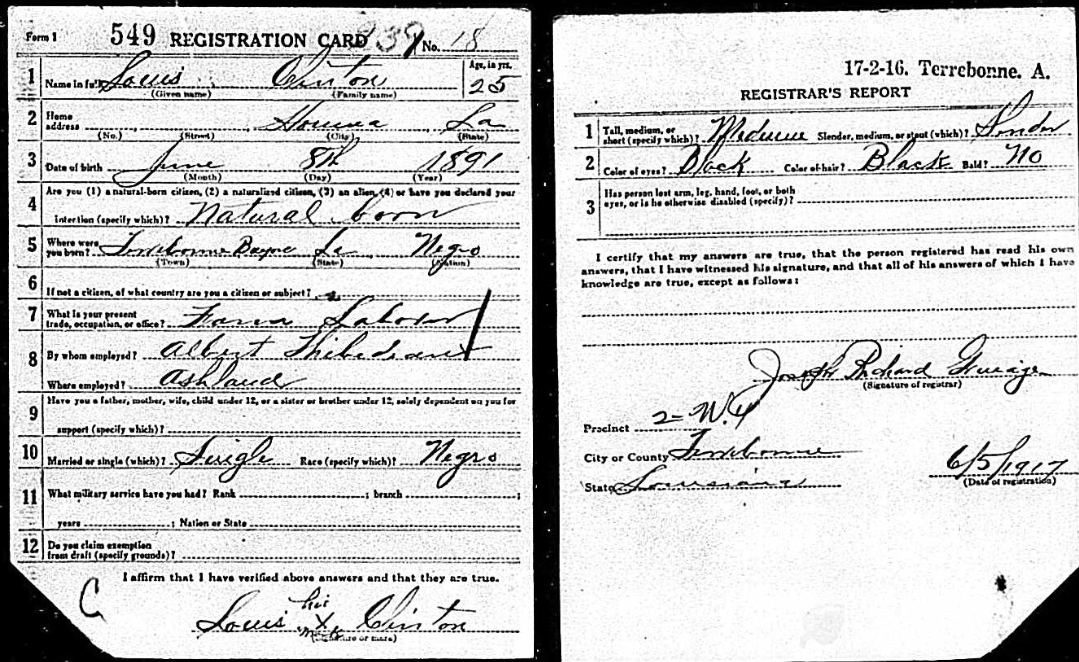 Form 1 549 REGISTRATION CARD No. 18
1 Name in full Louis Clinton Age, in yrs. 25
(Given name) (Family name)
2 Home address Houma La
(No.) (Street) (City) (State)
3 Date of birth June 8th 1891
(Month) (Day) (Year)
4 Are you (1) a natural-born citizen, (2) a naturalized citizen, (3) an alien, (4) or have you declared your
intention (specify which)? Natural born
5 Where were you born? La Negro
(Town) (State) (Nation)
6 If not a citizen, of what country are you a citizen or subject?
7 What is your present trade, occupation, or office? Farm Laborer
8 By whom employed? Albert
Where employed? Ashland
9 Have you a father, mother, wife, child under 12, or a sister or brother under 12, solely dependent on you for
support (specify which)?
10 Married or single (which)? Single Race (specify which)? Negro
11 What military service have you had? Rank ; branch ;
years ; Nation or State
12 Do you claim exemption
from draft (specify grounds)?
I affirm that I have verified above answers and that they are true.
C
his
Louis X Clinton
mark
(Signature or mark)
17-2-16. Terrebonne. A.
REGISTRAR'S REPORT
1 Tall, medium, or short (specify which)? Medium Slender, medium, or stout (which)?
2 Color of eyes? Black Color of hair? Black Bald? No
3 Has person lost arm, leg, hand, foot, or both
eyes, or is he otherwise disabled (specify)?
I certify that my answers are true, that the person registered has read his own
answers, that I have witnessed his signature, and that all of his answers of which I have
knowledge are true, except as follows:
Joseph Richard
(Signature of registrar)
Precinct 2 - W. 4
City or County Terrebonne
State Louisiana
6/5/1917
(Date of registration)